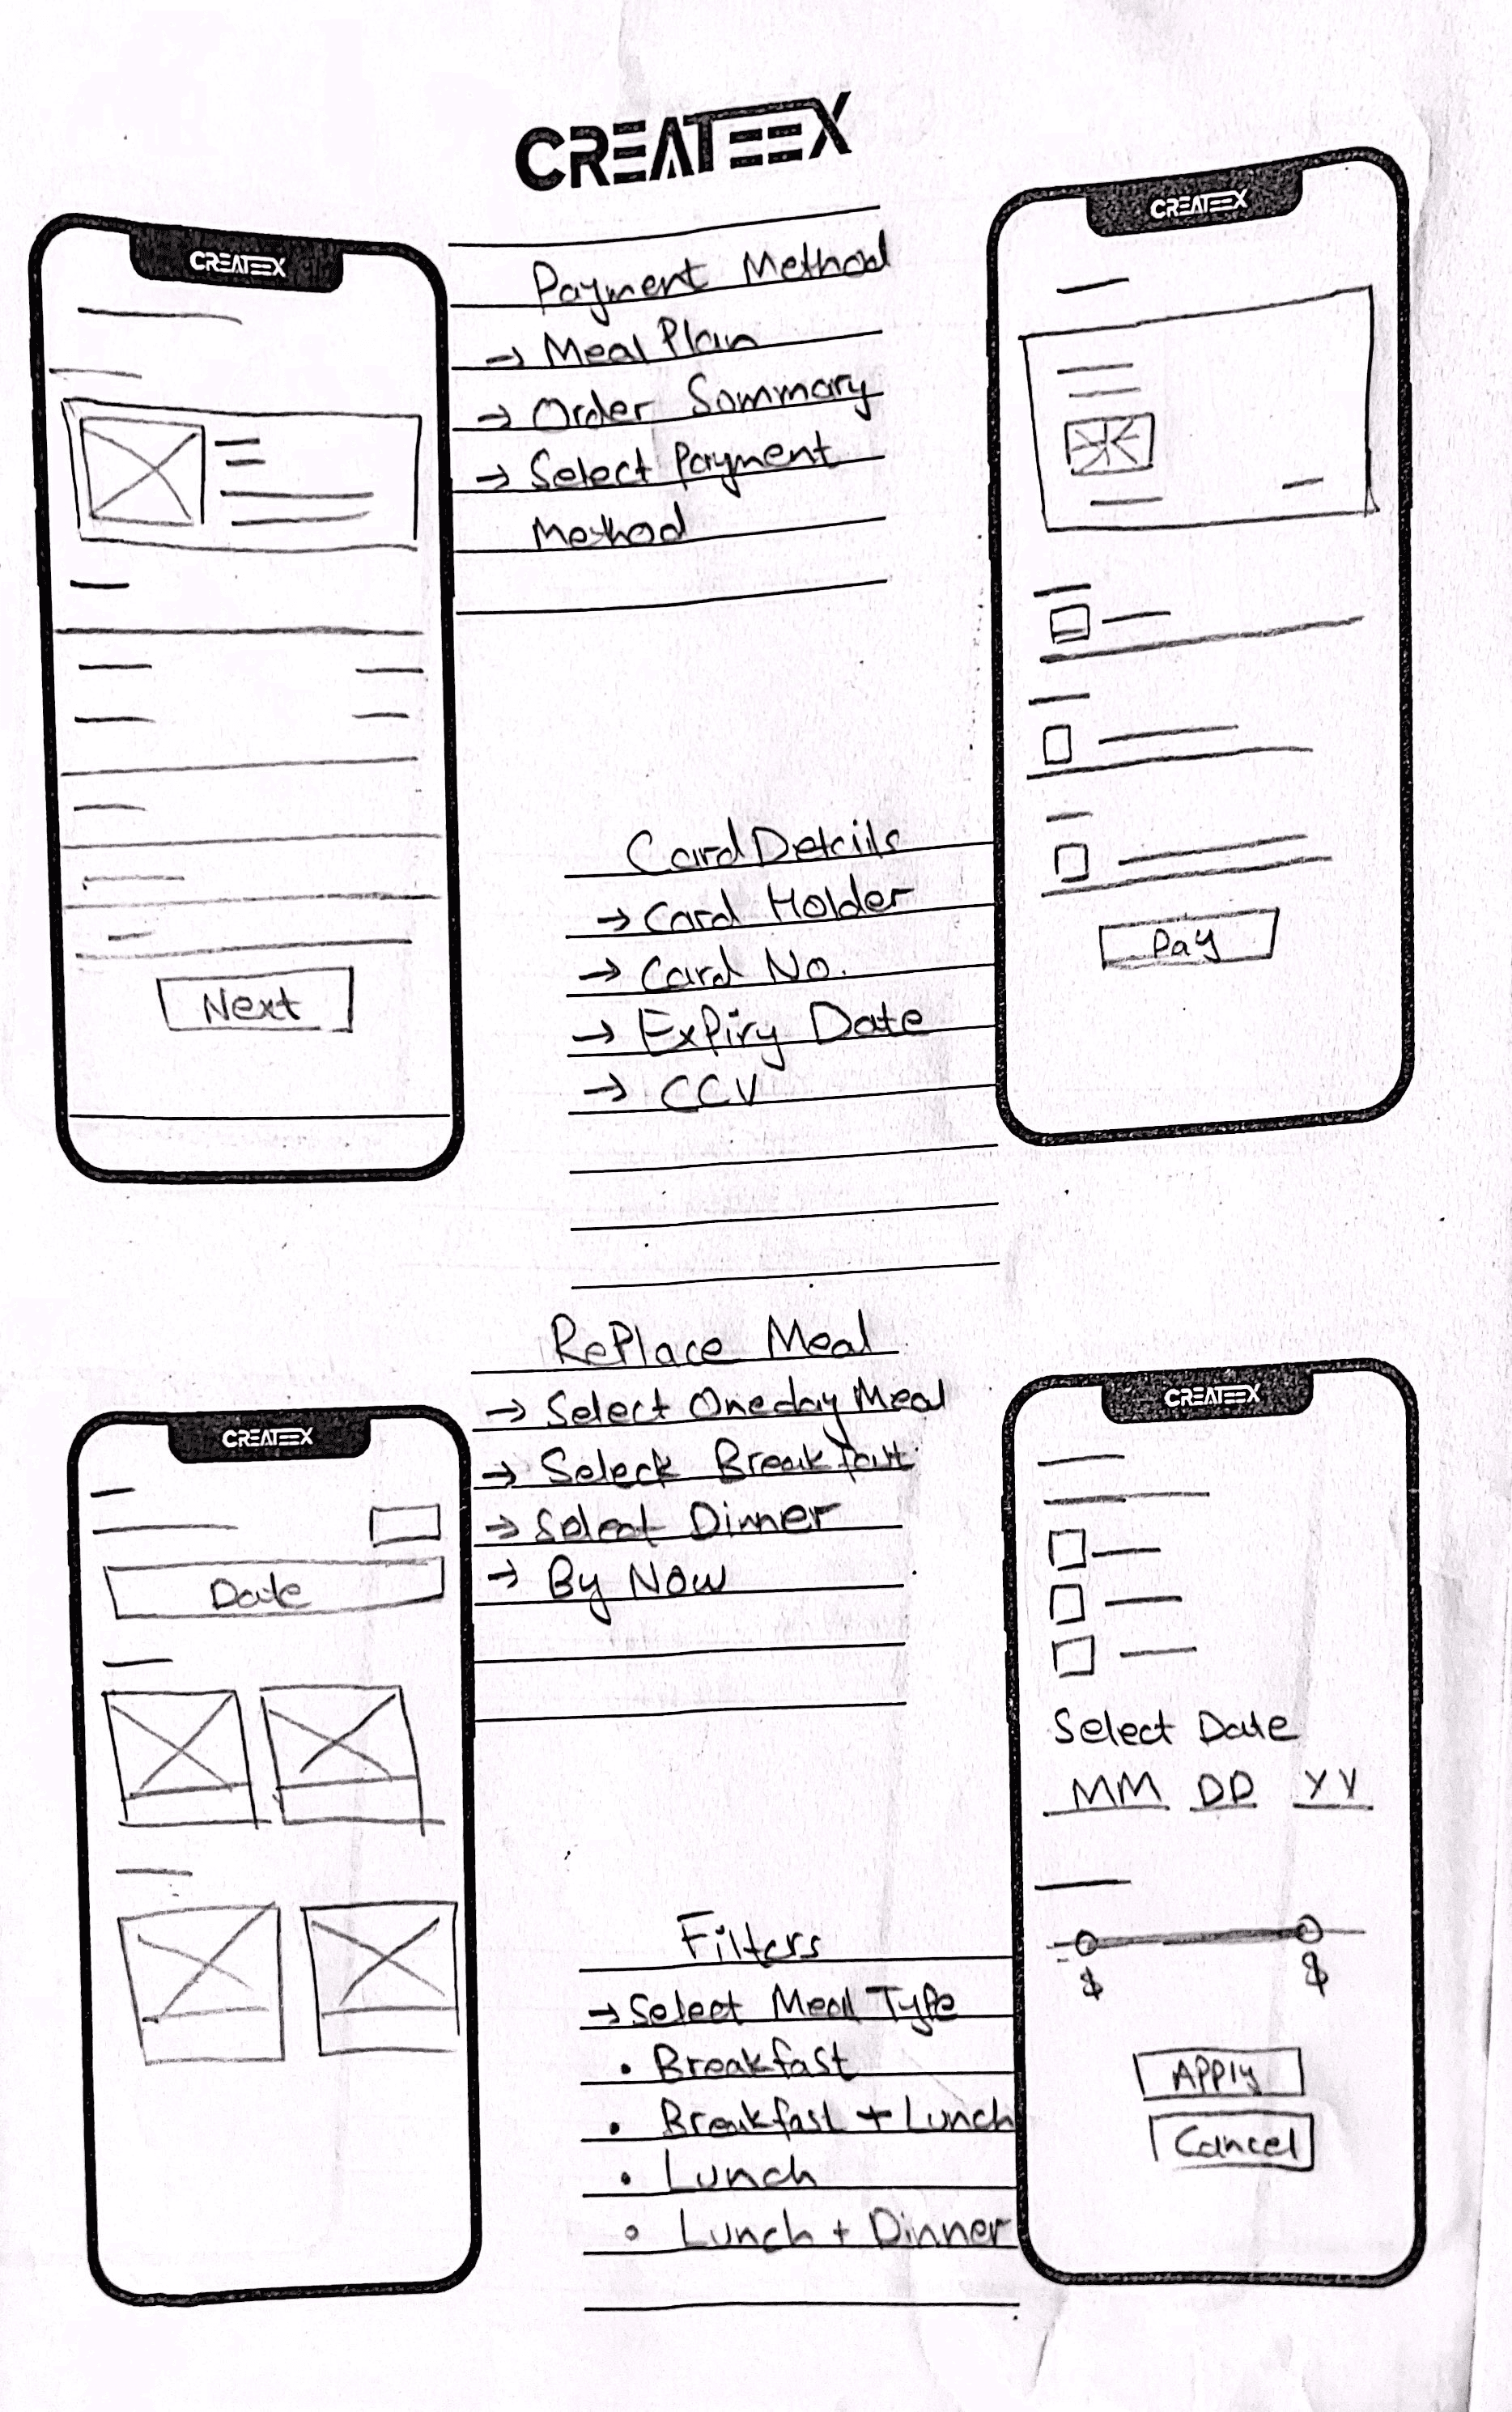 CREATEEX
CREATEEX
Payment Method
→ Meal Plan
→ Order Sommary
→ Select Payment
Method
Next
CREATEEX
Card Details
→ Card Holder
→ Card No.
→ Expiry Date
→ CCV
Pay
CREATEEX
Date
RePlace Meal
→ Select Oneday Meal
→ Select Breakfast
→ Select Dinner
→ By Now
CREATEEX
Select Date
MM DD YY
$ $
APPly
Cancel
Filters
→ Select Meal Type
• Breakfast
• Breakfast + Lunch
• Lunch
• Lunch + Dinner